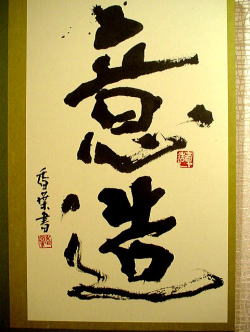 意造
香葉書